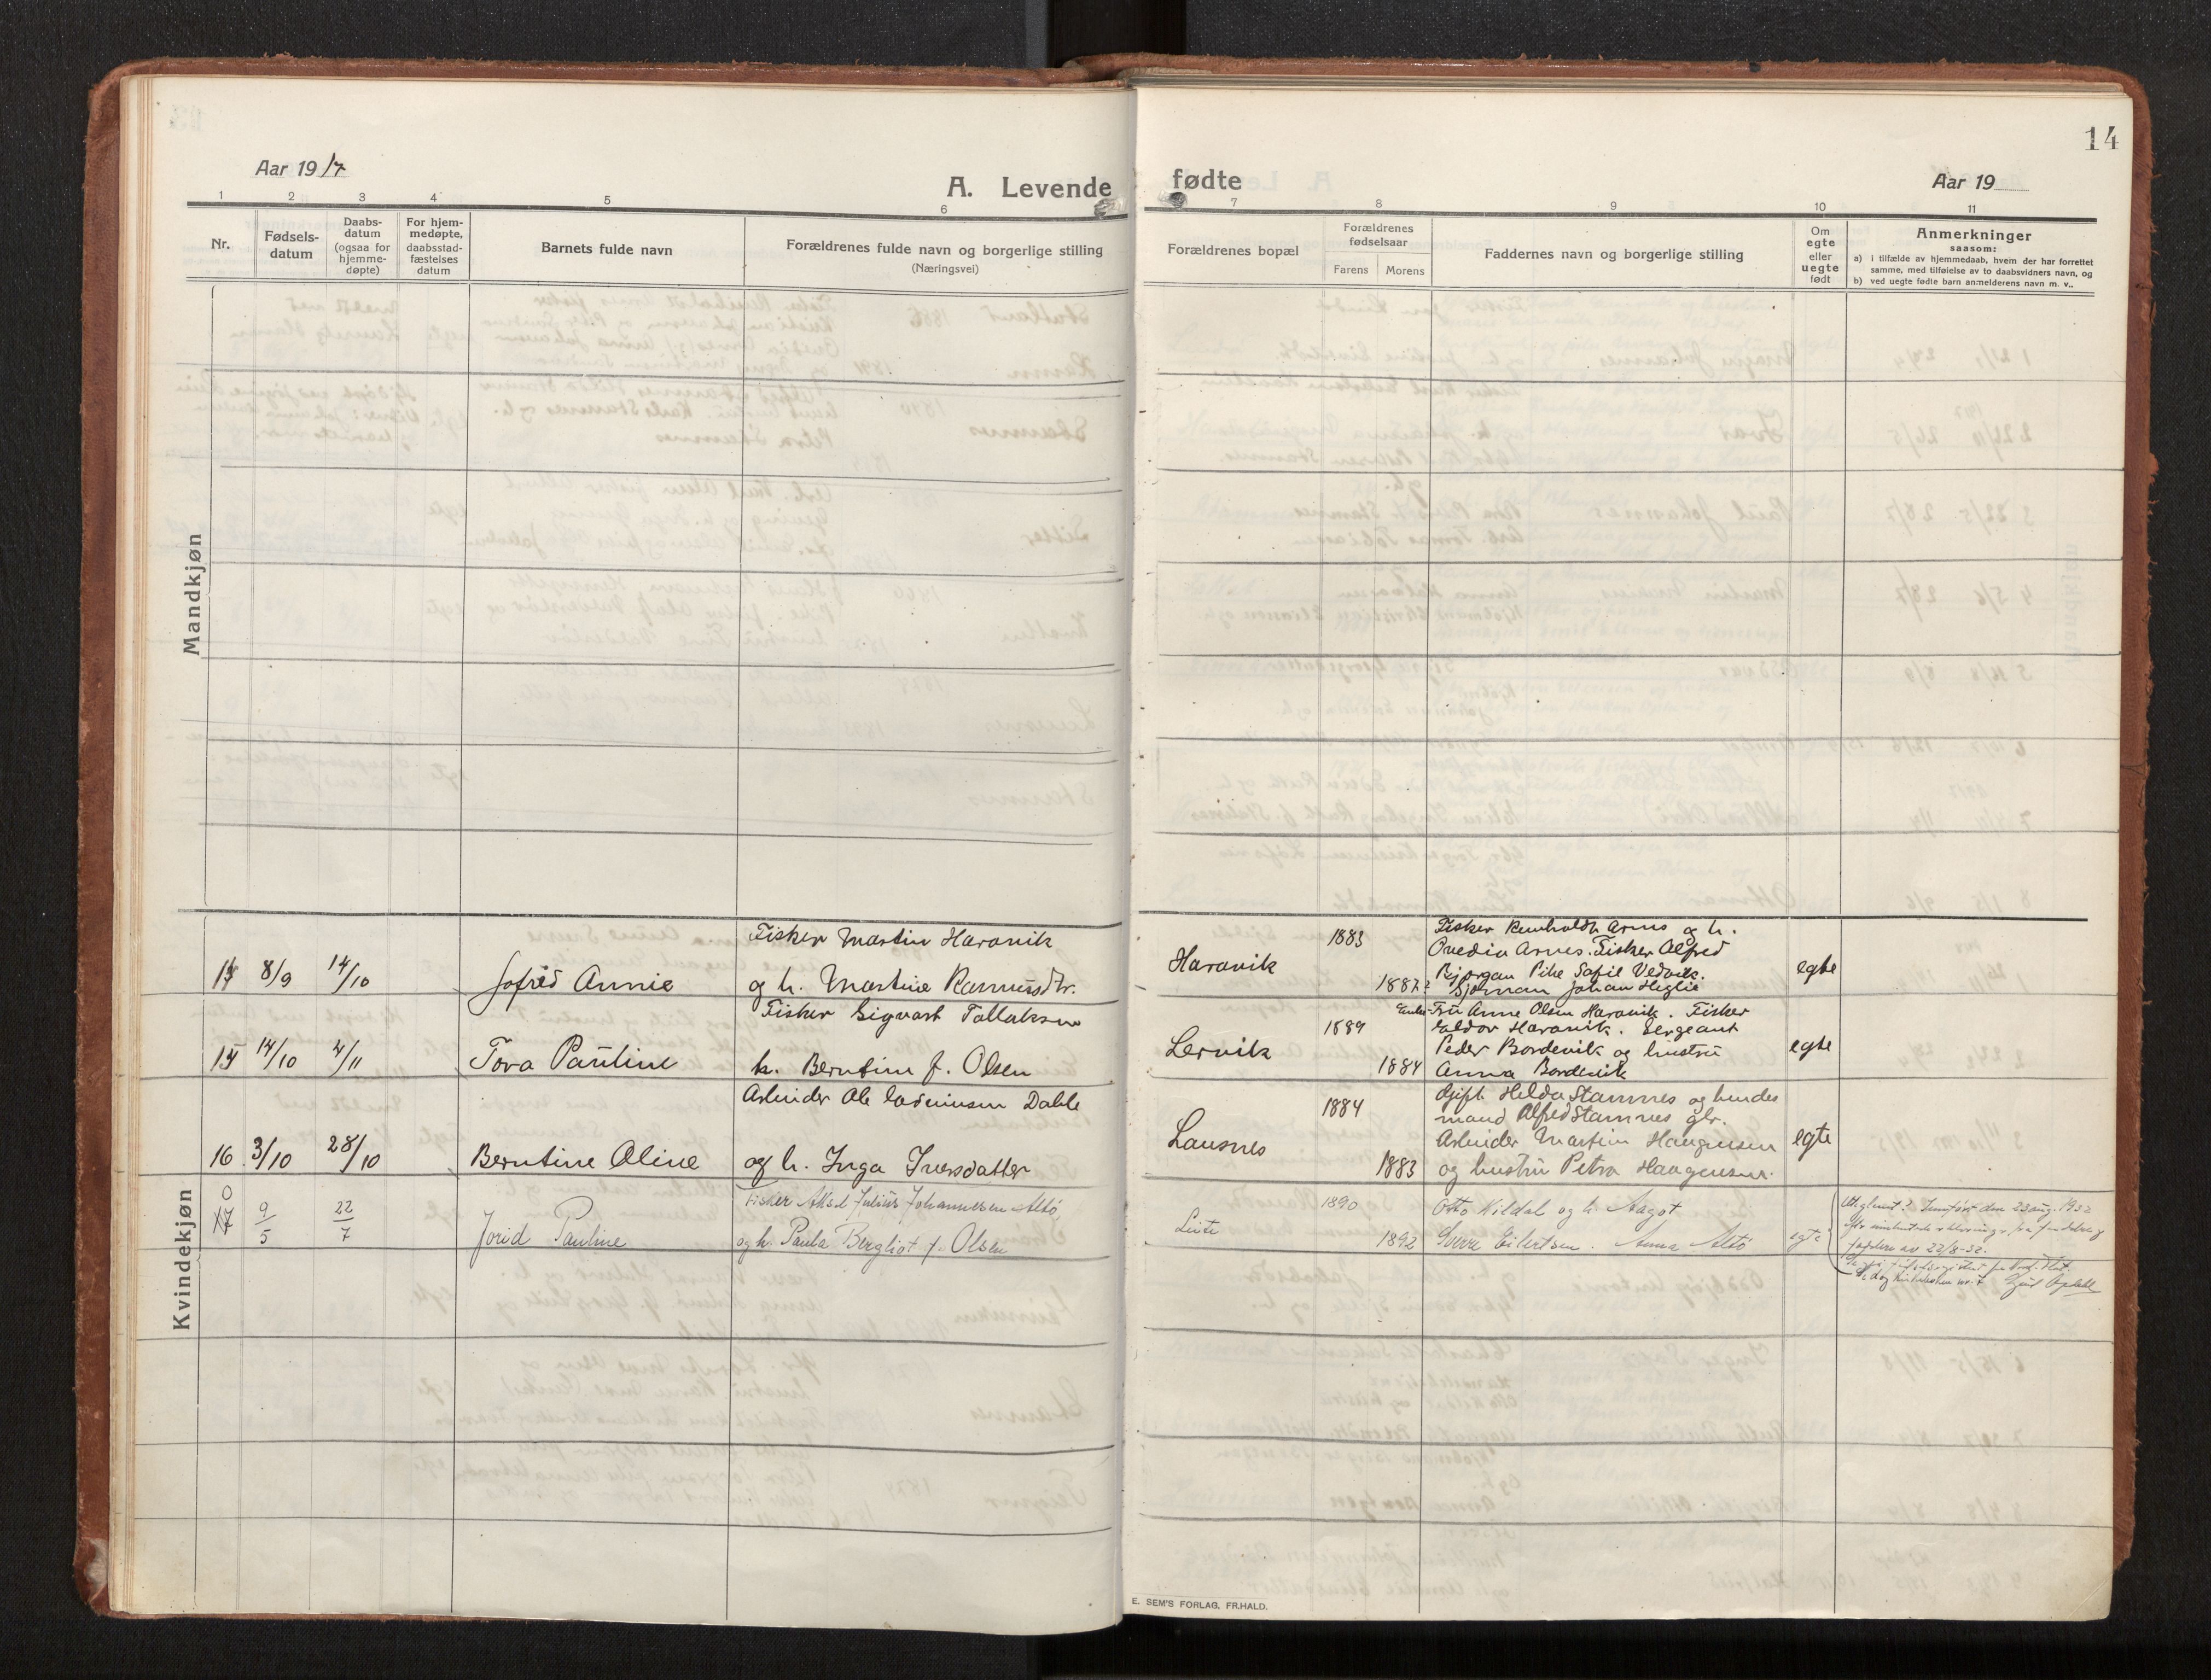 14
Aar 1917
A. Levende fødte
Aar 19
1 2 3 4 5 6 7 8 9 10 11
Nr.
Fødsels-
datum
Daabs-
datum
(ogsaa for
hjemme-
døpte)
For hjem-
medøpte,
daabsstad-
fæstelses
datum
Barnets fulde navn
Forældrenes fulde navn og borgerlige stilling
(Næringsvei)
Forældrenes bopæl
Forældrenes
fødselsaar
Farens Morens
Faddernes navn og borgerlige stilling
Om
egte
eller
uegte
født
Anmerkninger
saasom:
a) i tilfælde av hjemmedaab, hvem der har forrettet
samme, med tilføielse av to daabsvidners navn, og
b) ved uegte fødte barn anmelderens navn m. v..
Mandkjøn
Kvindekjøn
8/9 14/10 Jofrid Annie
Fisker Martin Haravik
og h. Martine Rasmusdtr.
Haravik
1883
1887
Fisker Reinholdt Arnes og h.
Ovedia Arnes. Fisker Alfred
Bjørgan Pike Sofie Vedvik.
Johan Heglie
egte
15 14/10 4/11 Tova Pauline
Fisker Sigvart Tollaksen
h. Berntine f. Olsen
Lervik
1889
1884
Fru Anne Olsen Haravik. Fisker
Haldor Haravik. Sergeant
Peder Bordevik og hustru
Anna Bordevik
egte
16 3/10 28/10 Berntine Oline
Arbeider Ole Dahle
og h. Inga Iversdatter
Lausnes
1884
1883
Gift Helda Stamnes og hendes
mand Alfred Stamnes gbr.
Arbeider Martin Haugensen
og hustru Petra Haagensen.
egte
0
17 9/5 22/7 Jorid Pauline
Fisker Aksel Julius Johannesen Altø
og h. Paula Bergliot f. Olsen
1890
1892
Otto Kildal og h. Aagot
Sverre Eilertsen. Anna Altø
egte
Uteglemt? Innført den 23 aug. 1932
av 22/8-32.
E. SEM'S FORLAG, FR.HALD.